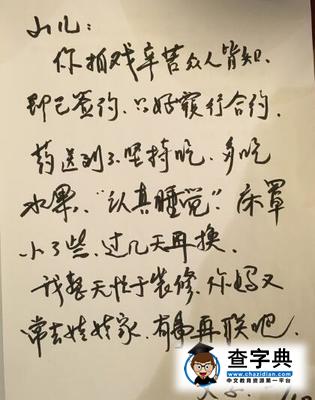 山儿：
你拍戏辛苦众人皆知、
即已签约、只好履行合约、
药送到了坚持吃、多吃
水果、"认真睡觉"、床罩
小了些、过几天再换、
我整天忙于装修、你妈又
常去姥姥家、有事再联吧、
查字典
www.chazidian.com
中文教育资源第一平台